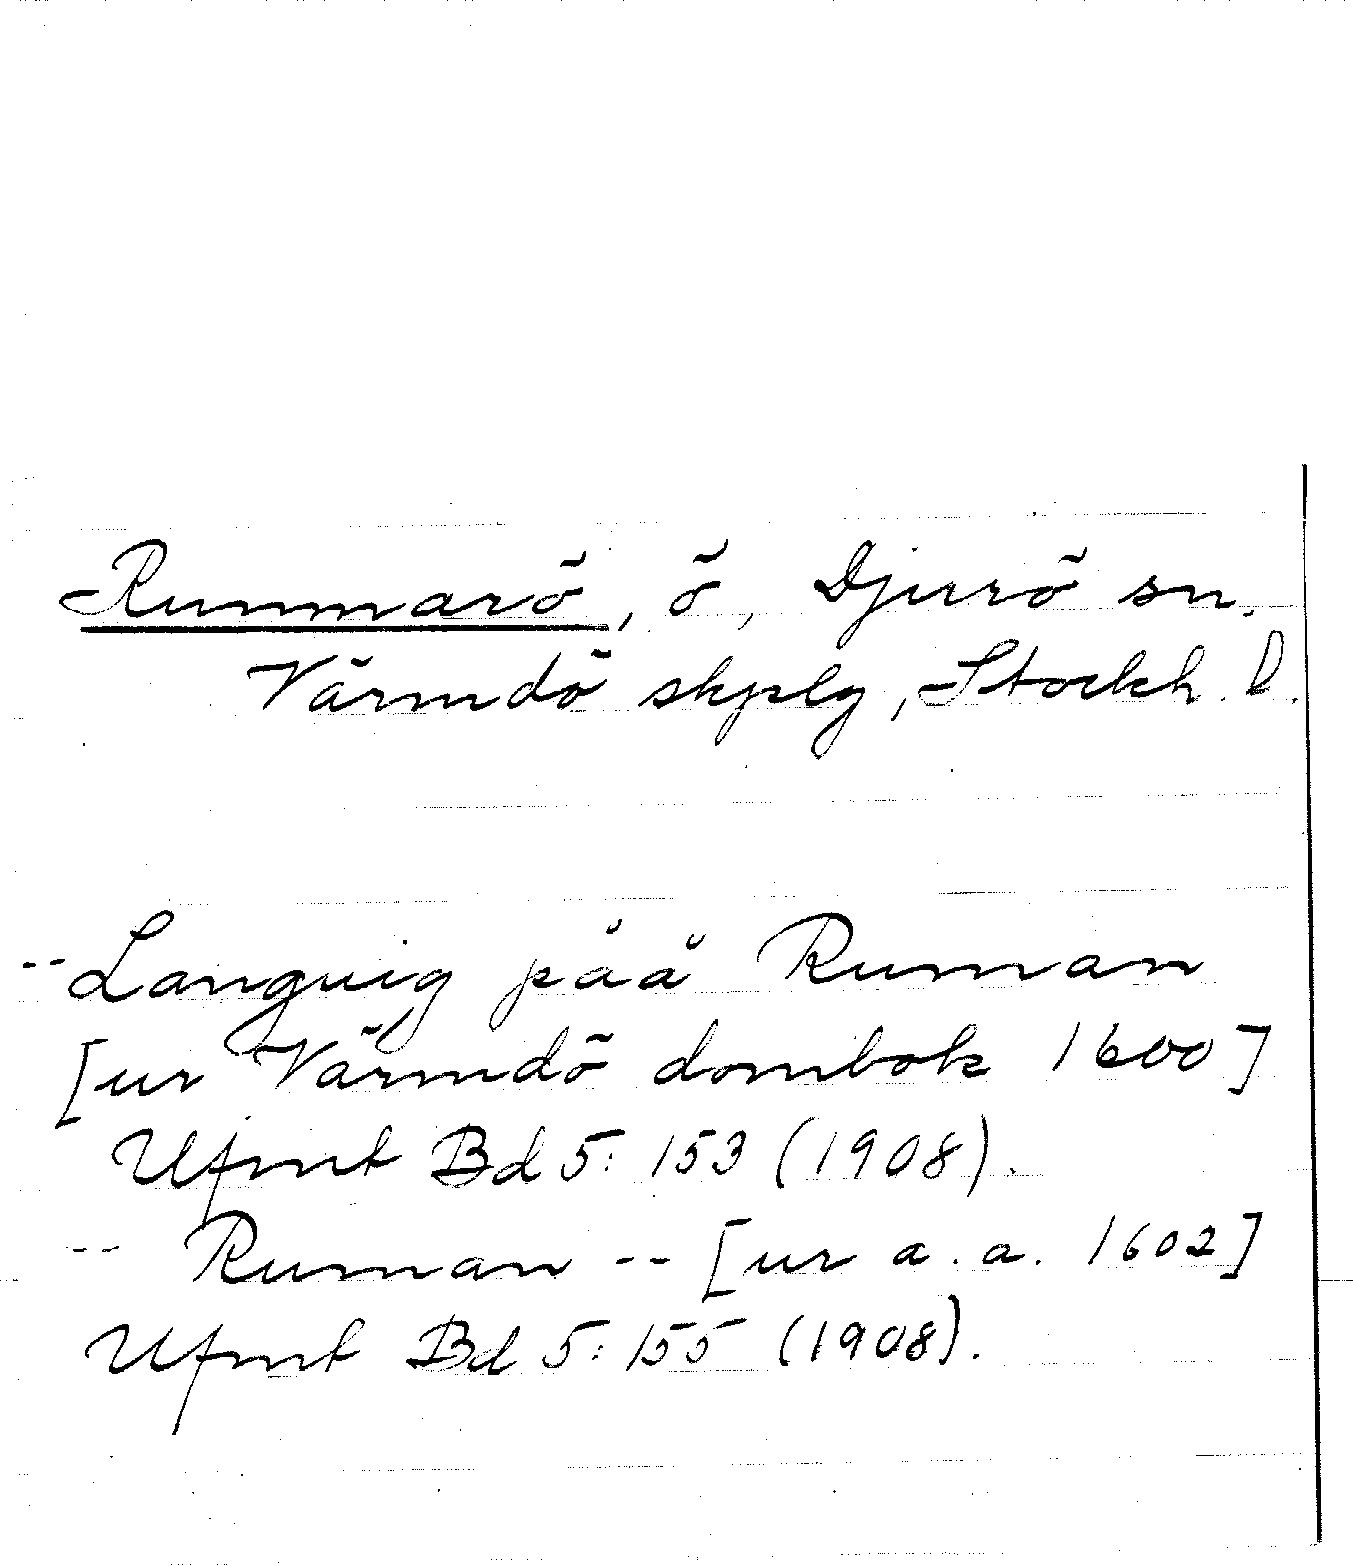 Runmarö, ö, Djurö sn.
Värmdö skplg, Stockh. D.
-- Languig påå Ruman
[ur Värmdö dombok 1600]
Ufmt Bd 5: 153 (1908).
-- Ruman -- [ur a. a. 1602]
Ufmt Bd 5: 155 (1908).